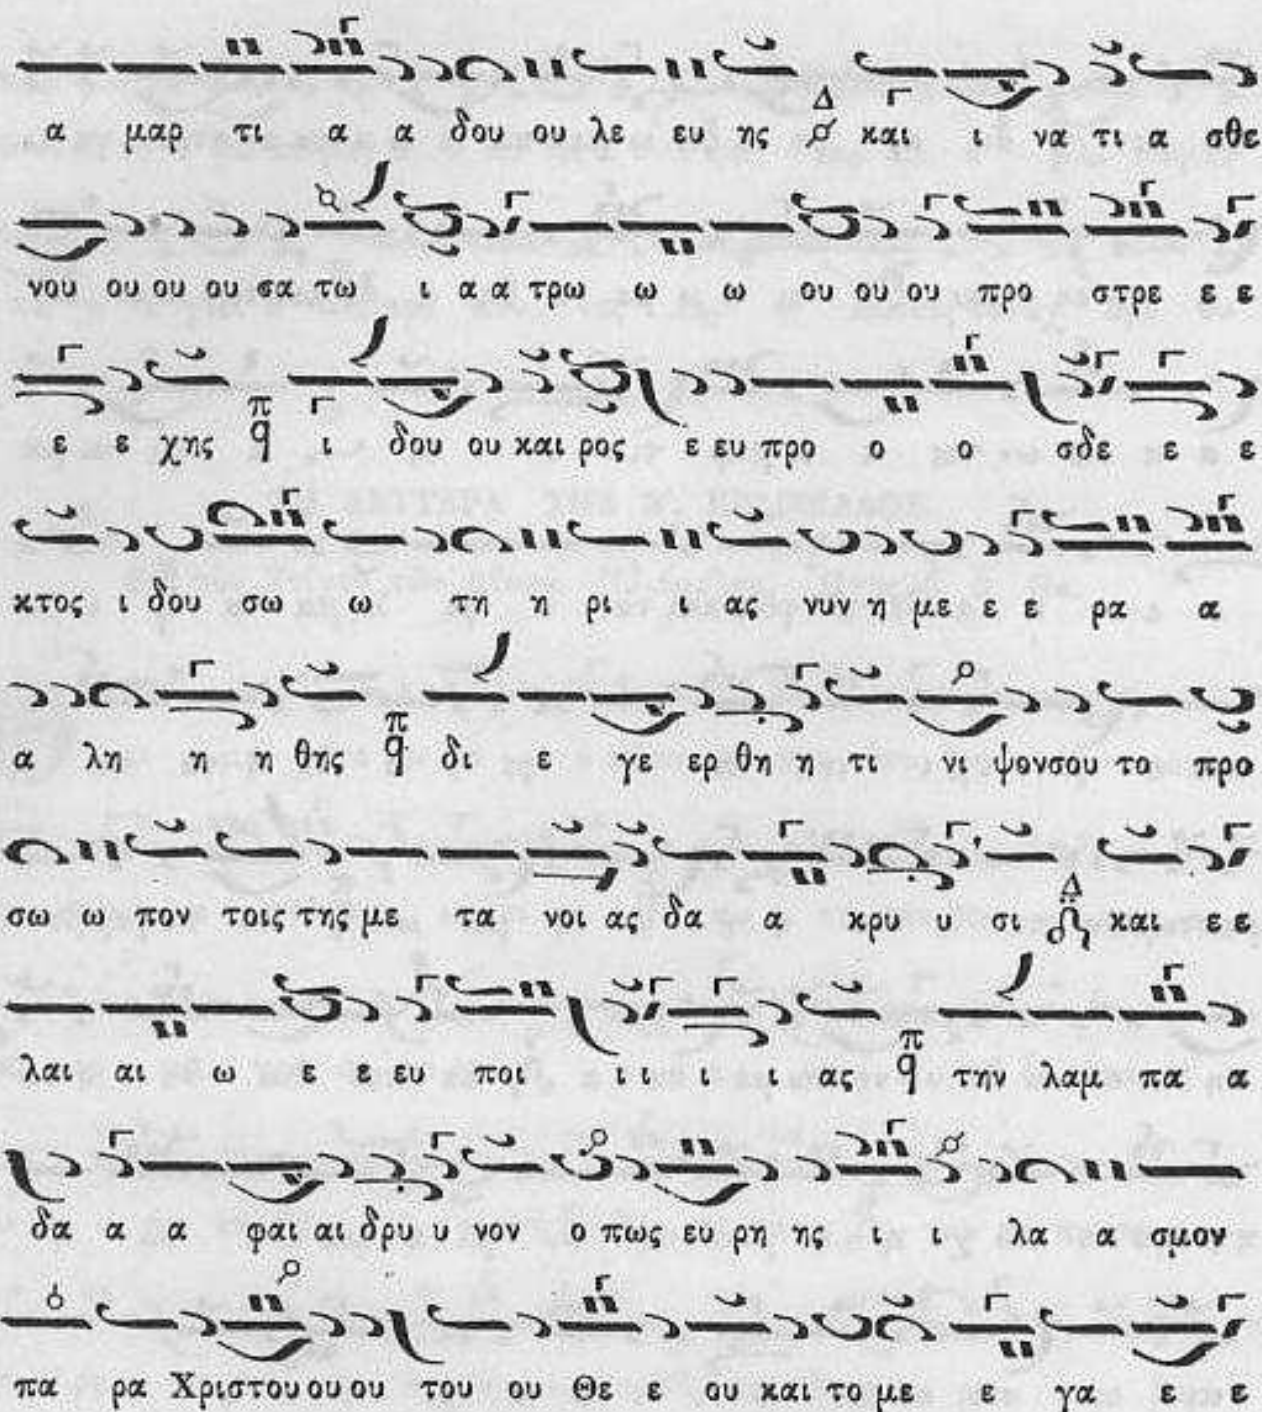 α μαρ τι α α δου ου λε ευ ης Δ και ι να τι α σθε
νου ου ου ου σα τω ι α α τρω ω ω ου ου ου προ στρε ε ε
ε ε χης π q ι δου ου και ρος ε ευ προ ο ο σδε ε ε
κτος ι δου σω ω τη η ρι ι ας νυν η με ε ε ρα α
α λη η η θης π q δι ε γε ερ θη η τι νι ψον σου το προ
σω ω πον τοις της με τα νοι ας δα α κρυ υ σι Δ και ε ε
λαι αι ω ε ε ευ ποι ι ι ι ι ας π q την λαμ πα α
δα α α φαι αι δρυ υ νον ο πως ευ ρη ης ι ι λα α σμον
πα ρα Χριστου ου ου του ου Θε ε ου και το με ε γα ε ε